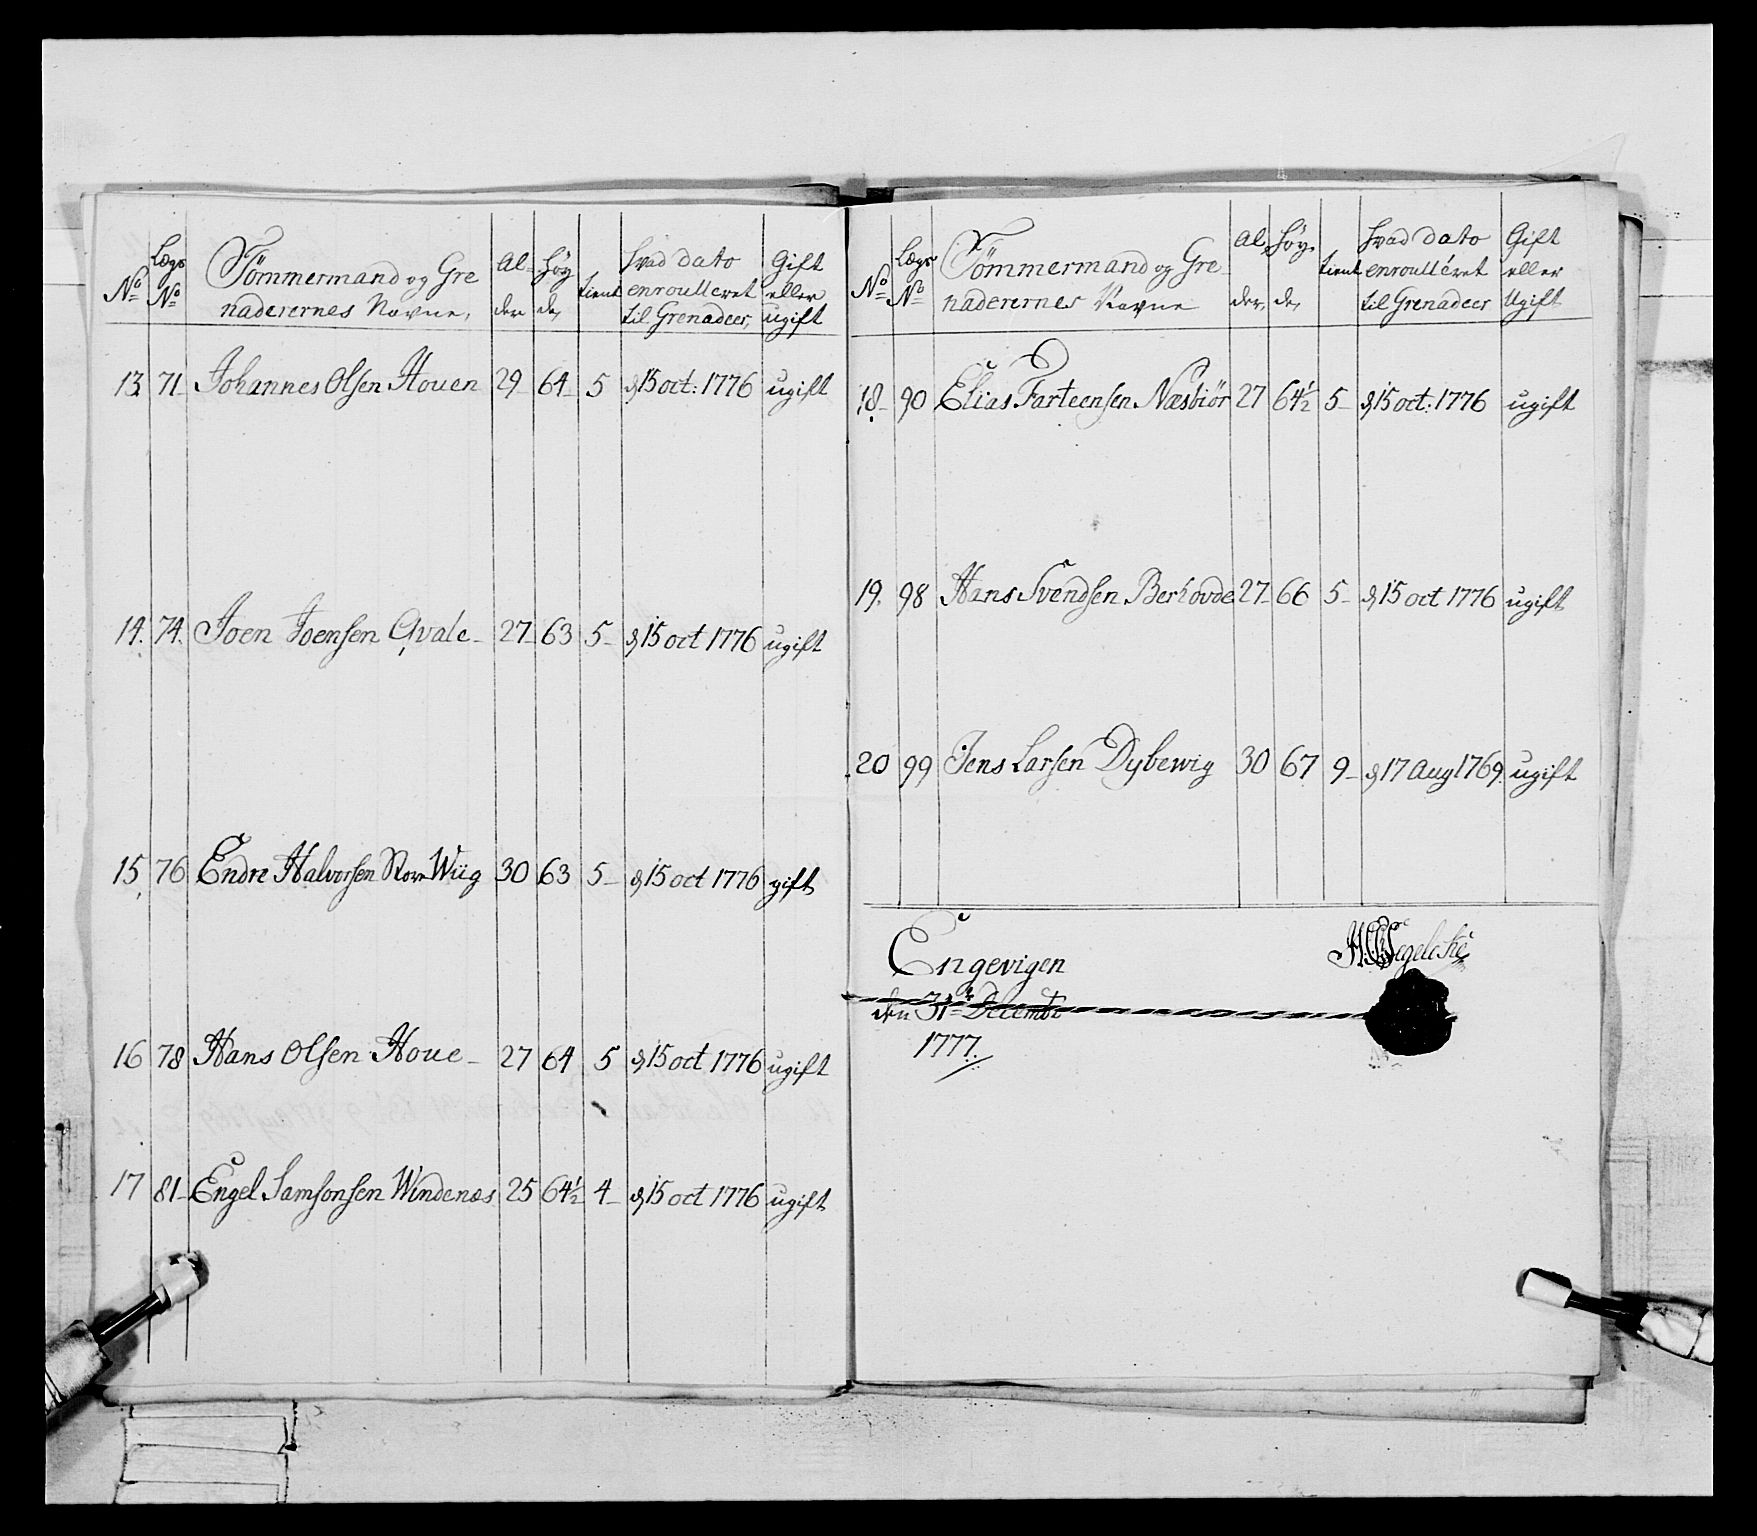 No Lægs No Tömmermand og Gre naderernes Navne, Al der Höy de, tient hvad dato enroulleret til Grenadeer, Gift eller ugift
13. 71 Johannes Olsen Houen 29 64 5 d 15 oct: 1776 ugift
14. 74. Joen Joensen Qvale 27 63 5 d 15 oct 1776 ugift
15, 76 Endre Halvorsen Store Wiig 30 63 5 d 15 oct 1776 gift
16 78 Hans Olsen Houe 27 64 5 d 15 oct 1776 ugift
17 81 Engel Samsonsen Windenæs 25 64½ 4 d 15 oct 1776 ugift
No Lægs No Tömmermand og Gre naderernes Navne Al der, Höy de, tient hvad dato enroulléret til Grenadeer Gift eller Ugift
18 90 Elias Farteensen Næsbiör 27 64½ 5 d 15 oct: 1776 ugift
19. 98 Hans Svendsen Berhovde 27 66 5 d 15 oct 1776 ugift
20 99 Jens Larsen Dybewig 30 67 9 d 17 Aug 1769. ugift
Engevigen
den 31te Decembr
1777.